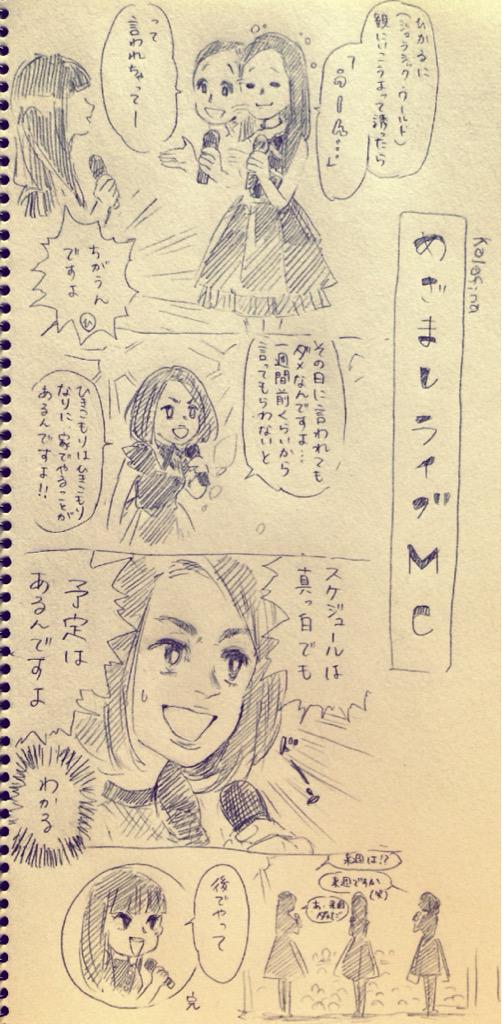 Kalafina
めざましライブMC
ひかるに
(ジュラシック・ワールド)
観にいこうよって誘ったら
「うーん…」
って
言われちゃってー
ちがうん
ですよ
その日に言われても
ダメなんですよ…
一週間前くらいから
言ってもらわないと
ひきこもりはひきこもり
なりに家でやることが
あるんですよ!!
スケジュールは
真っ白でも
予定は
あるんですよ
わかる
来週は!?
来週ですか
(笑)
あ、来週
ダメだ
後でやって
完